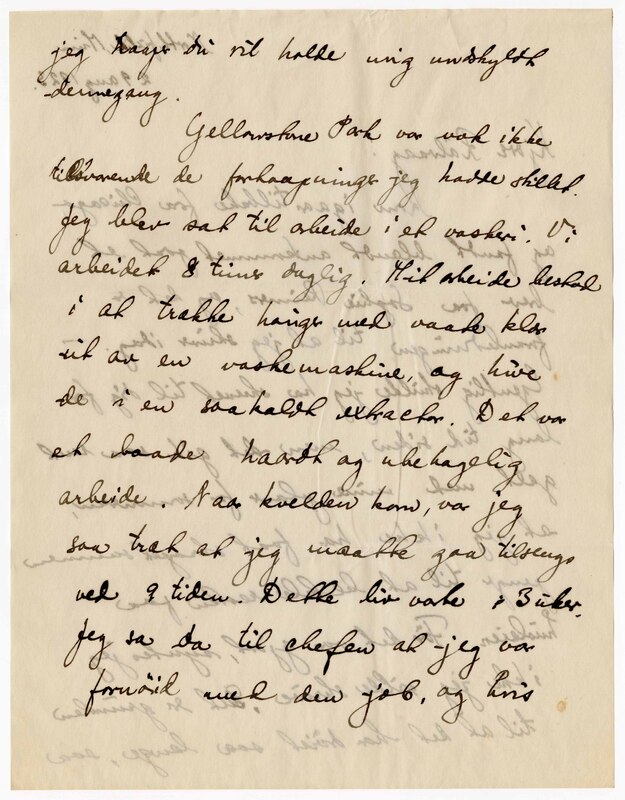 jeg haaper du vil holde mig undskyldt
dennegang.
Yellowstone Park var nok ikke
tilsvarende de forhaapninger jeg hadde stillet.
Jeg blev sat til arbeide i et vaskeri. Vi
arbeidet 8 timer daglig. Mit arbeide bestod
i at trække hauger med vaate klær
ut av en vaskemaskine, og hive
de i en saakaldt extractor. Det var
et baade haardt og ubehagelig
arbeide. Naar kvelden kom, var jeg
saa træt at jeg maatte gaa tilsengs
ved 9 tiden. Dette liv varte i 3 uker.
Jeg sa da til chefen at jeg var
fornöid med den job, og hvis